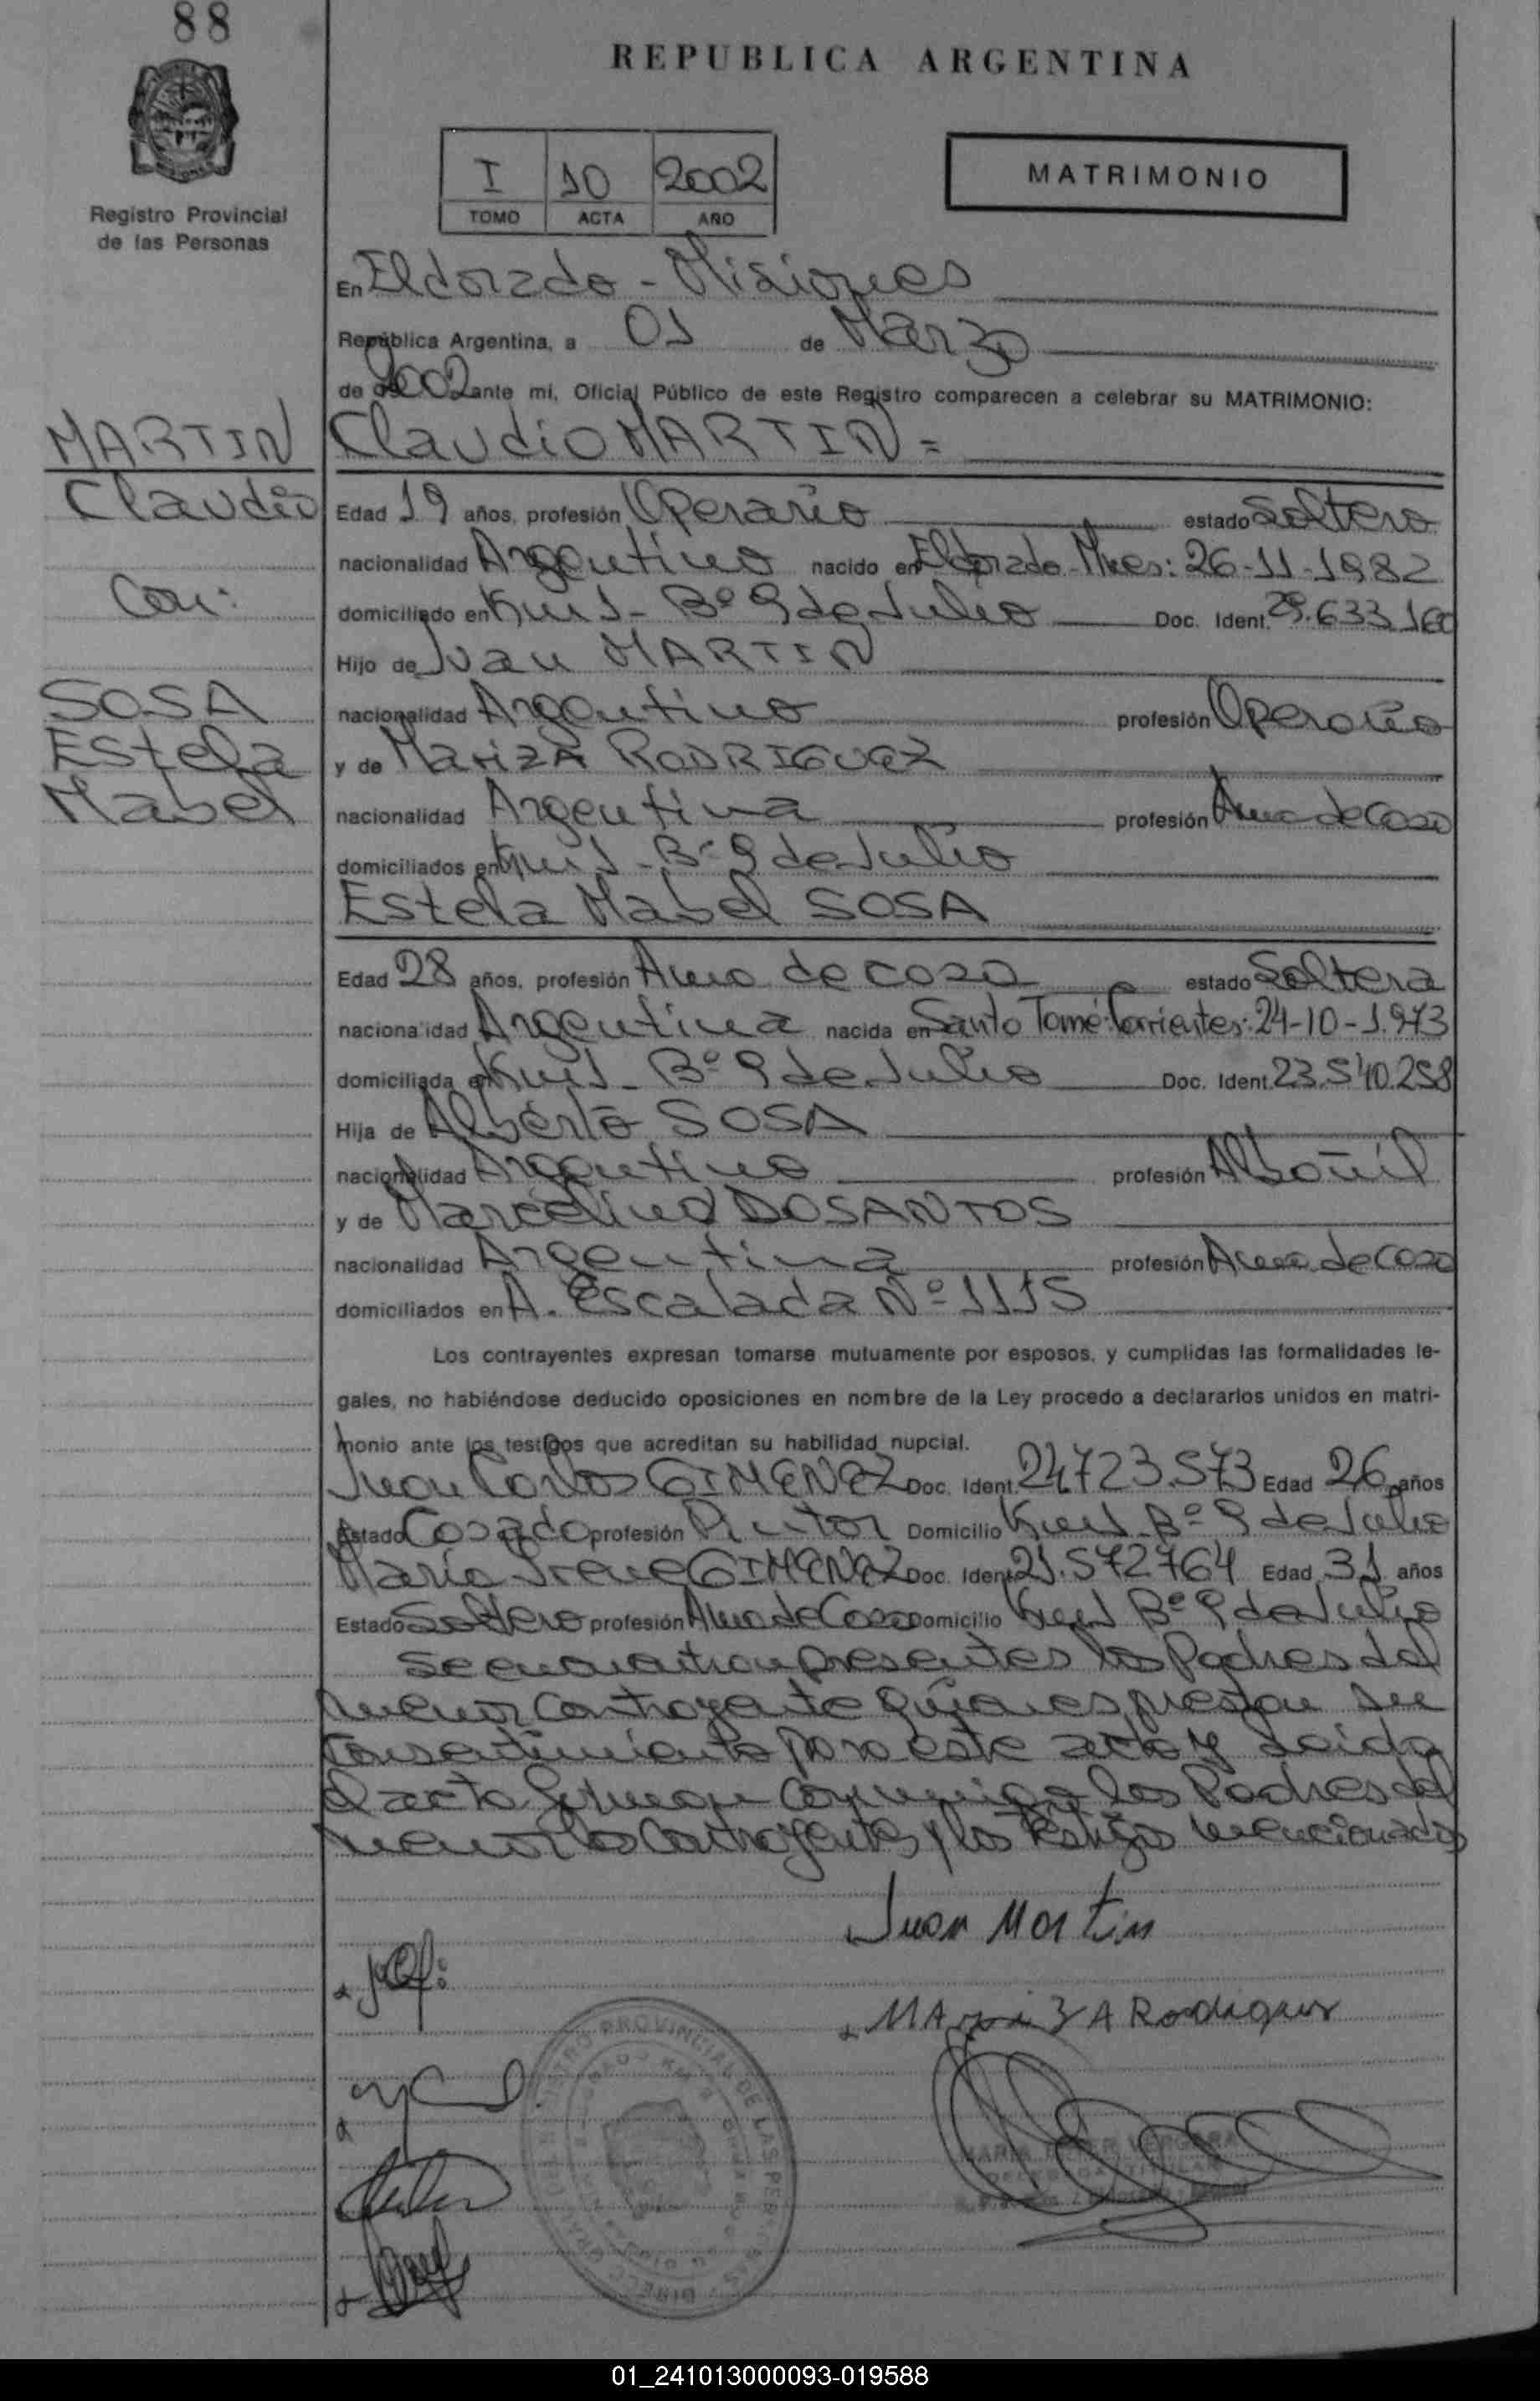 88
REPUBLICA ARGENTINA
Registro Provincial
de las Personas
I 10 2002
TOMO ACTA AÑO
MATRIMONIO
En Eldorado - Misiones
República Argentina, a 01 de Marzo
de 2002 ante mi, Oficial Público de este Registro comparecen a celebrar su MATRIMONIO:
MARTIN
Claudio
Con:
SOSA
Estela
Mabel
Claudio MARTIN =
Edad 19 años, profesión Operario estado Soltero
nacionalidad Argentino nacido en Eldorado-Mnes: 26-11-1982
domiciliado en Km 1- Bº 9 de Julio Doc. Ident. 29.633.160
Hijo de Juan MARTIN
nacionalidad Argentino profesión Operario
y de MariZA RODRIGUEZ
nacionalidad Argentina profesión Ama de Casa
domiciliados en Km 1- Bº 9 de Julio
Estela Mabel SOSA
Edad 28 años, profesión Ama de casa estado Soltera
nacionalidad Argentina nacida en Santo Tomé: Corrientes: 24-10-1.973
domiciliada en Km 1- Bº 9 de Julio Doc. Ident. 23.540.258
Hija de Alberto SOSA
nacionalidad Argentino profesión Albañil
y de Marcelina DOSANTOS
nacionalidad Argentina profesión Ama de Casa
domiciliados en A. Escalada Nº 1115
Los contrayentes expresan tomarse mutuamente por esposos, y cumplidas las formalidades le-
gales, no habiéndose deducido oposiciones en nombre de la Ley procedo a declararlos unidos en matri-
monio ante los testigos que acreditan su habilidad nupcial.
Juan Carlos GIMENEZ Doc. Ident. 24723.573 Edad 26 años
Estado Casado profesión Pintor Domicilio Km 1 Bº 9 de Julio
María Irene GIMENEZ Doc. Ident. 21.572764 Edad 31 años
Estado Soltera profesión Ama de Casa Domicilio Km 1 Bº 9 de Julio
Se encuentran presentes los Padres del
menor contrayente quienes prestan su
consentimiento para este acto y Leida
el acta firman conmigo los Padres del
menor los contrayentes y los testigos mencionados
Juan Martin
MAriZA Rodriguez
REGISTRO PROVINCIAL DE LAS PERSONAS
MARIA ESTER VERGARA
DELEGADA TITULAR
01_241013000093-019588